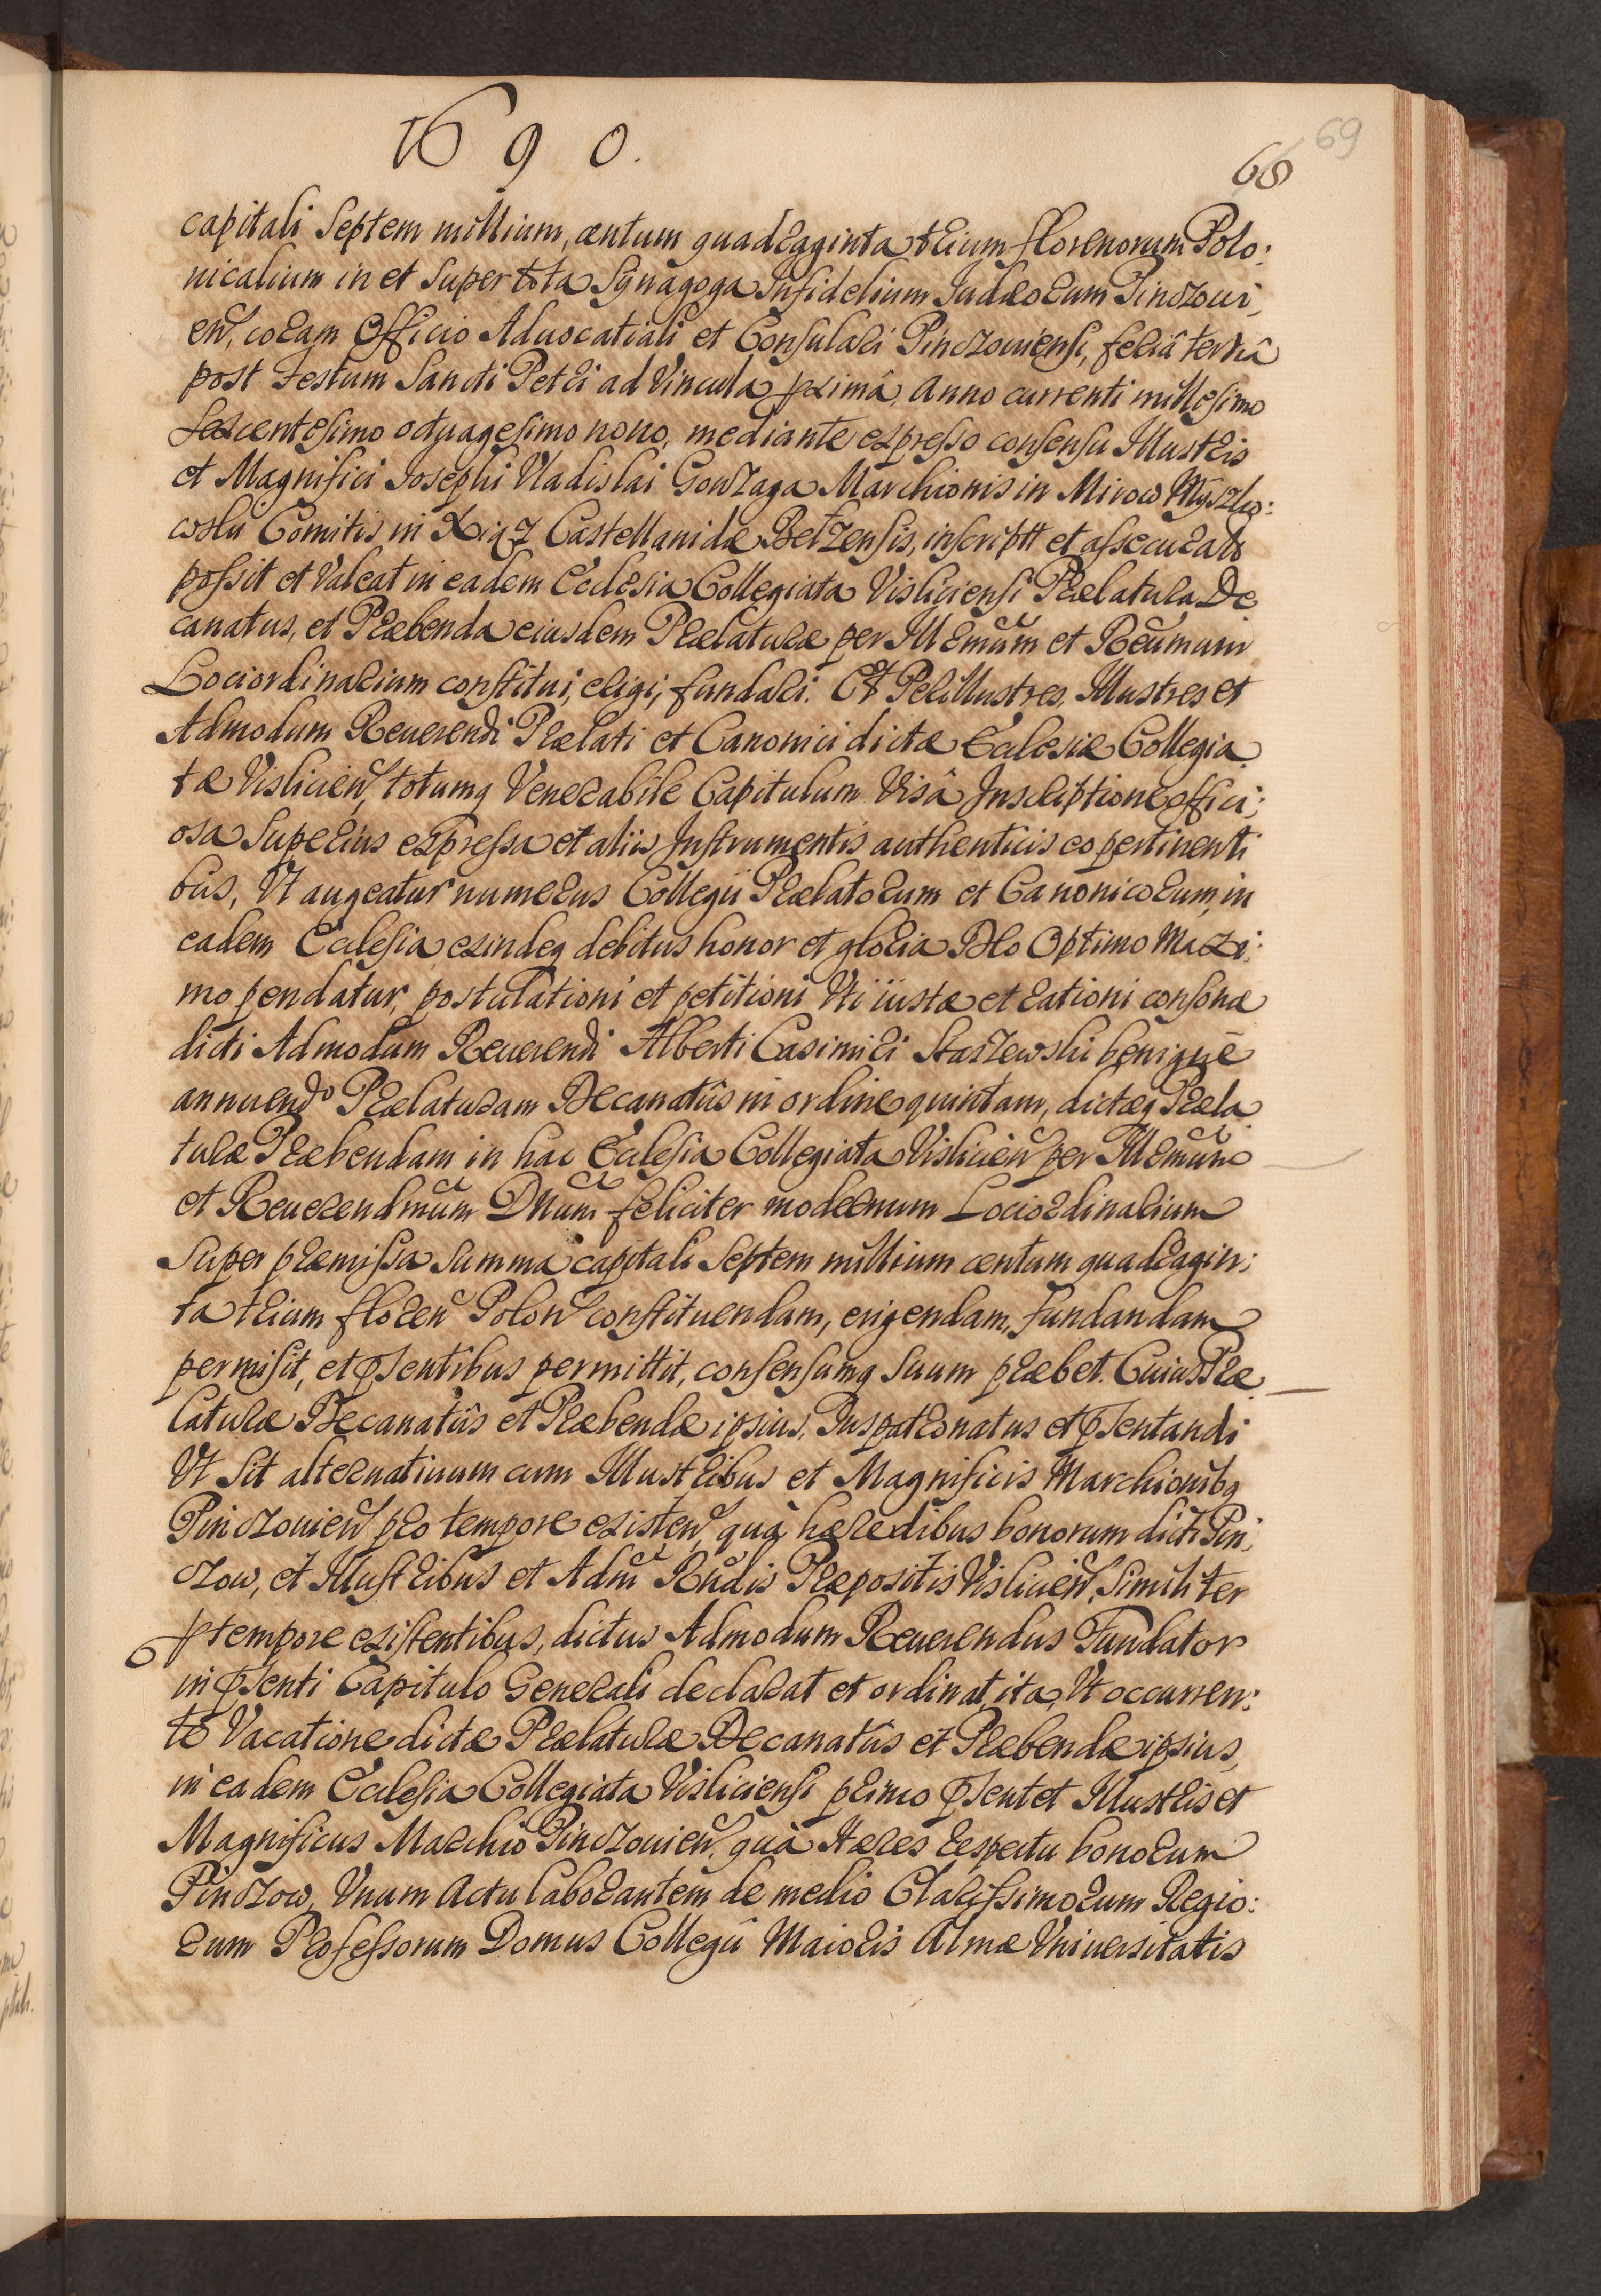 1690.
68 69
capitali Septem millium, centum quadragginta trium florenorum Polo:
nicalium in et super tota Synagoga Infidelium Judæorum Pinczoui,
eñ, coram Officio Aduocatiali et Consulari Pinczouiensi, feriâ tertiâ
post Festum Sancti Petri ad Vincula primâ, Anno currenti millesimo
sexcentesimo octuagesimo nono, mediante expresso consensu Illustris
et Magnifici Josephi Vladislai Gonzaga Marchionis in Mirow Myszko:
wski Comitis in Xiąz Castellanidæ Belzensis, inscriptt et assecurats
possit et Valeat in eadem Ecclesia Collegiata Visliciensi Prælatura De
canatus, et Præbenda eiusdem Prælaturæ per Illrmũm et Reũmum
Lociordinarium constitui, erigi, fundari. Et Perillustres, Illustres et
Admodum Reuerendi Prælati et Canonici dictæ Ecclesiæ Collegia
tæ Vislicieñ, totumq Venerabile Capitulum Visâ Inscriptione offici;
osa superius expressa et aliis Instrumentis authenticis eo pertinenti
bus, Vt augeatur numerus Collegii Prælatorum et Canonicorum, in
eadem Ecclesia, exindeq debitus honor et gloria Dło Optimo Maxi:
mo pendatur, postulationi et petitioni Vti iustæ et rationi consonæ
dicti Admodum Reuerendi Alberti Casimiri Staszewski benignè
annuendo Prælaturam Decanatûs in ordine quintam, dictæq Præla
turæ Præbendam in hac Ecclesia Collegiata Visliciẽn per Illrmũm
et Reuerendmũm Dnũm feliciter modernum Lociordinarium
super præmissa summa capitali Septem millium centum quadragin;
ta trium floreñ Poloñ constituendam, erigendam, Fundandam
permisit, et pñsentibus permittit, consensumq suum præbet. Cuius Præ
laturæ Decanatûs et Præbendæ ipsius, Juspatronatus et pñsentandi
Vt sit alternatiuum cum Illustribus et Magnificis Marchionibq
Pinczouieñ pro tempore existeñ, quà hæredibus bonorum dicti Pin,
czow, et Illustribus et Adm̃ Rñdis Præpositis Visliciẽn, similiter
ptempore existentibus, dictus Admodum Reuerendus Fundator
in pñsenti Capitulo Generali declarat et ordinat, ita, Vt occurren:
te Vacatione dictæ Prælaturæ Decanatûs et Præbendæ ipsius,
in eadem Ecclesia Collegiata Visliciensi primo pñsentet Illustris et
Magnificus Marchio Pinczouieñ, quà Hæres respectu bonorum
Pinczow, Vnum actu laborantem de medio Clarissimorum Regio:
rum Professorum Domus Collegii Maioris Almæ Vniuersitatis